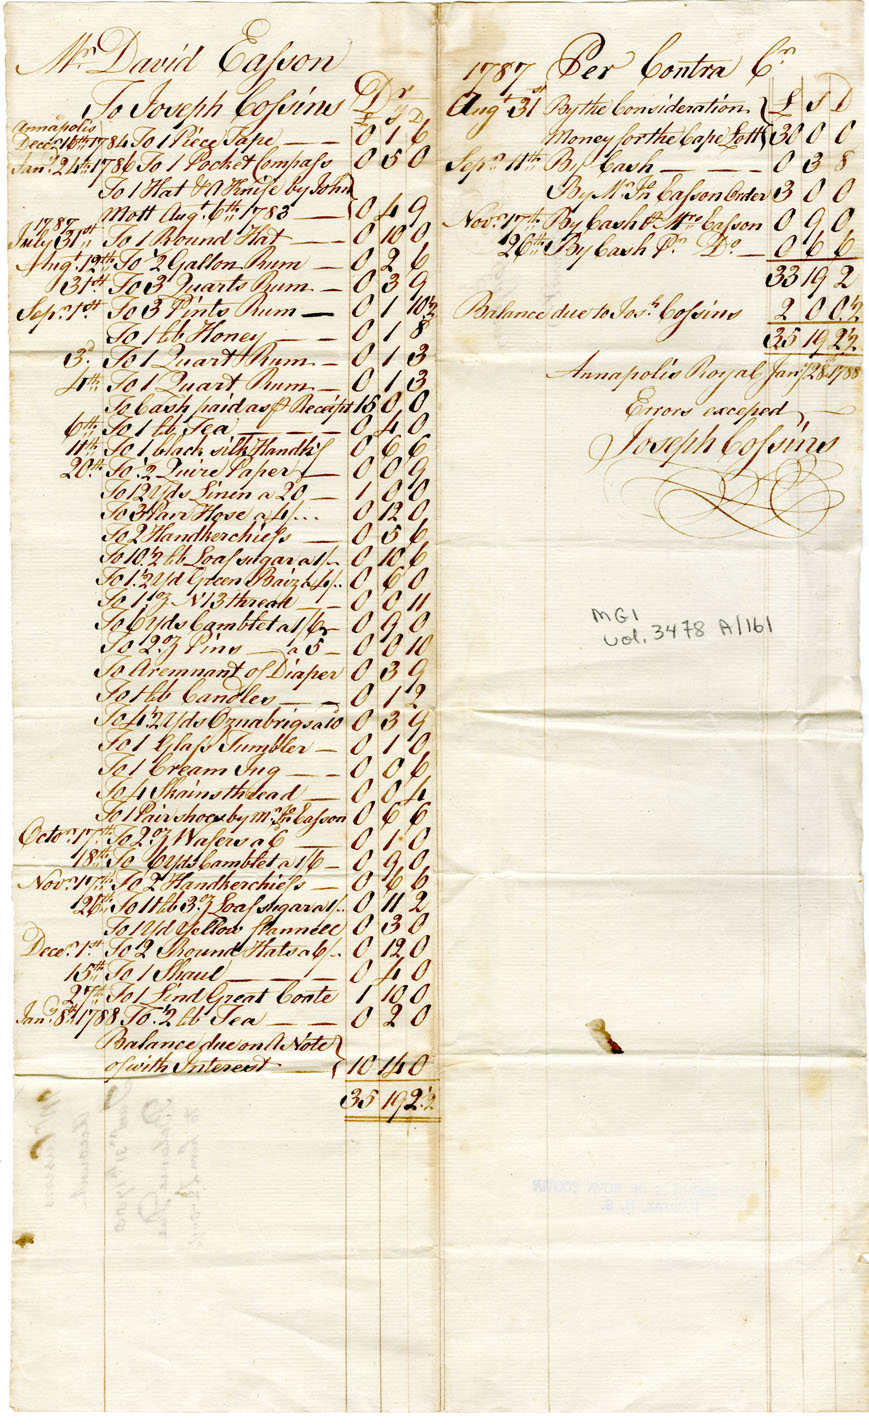 Mr. David Easson
To Joseph Cossins Dr
£ S D
Annapolis
Decr. 16th. 1784 To 1 Piece Tape 0 1 6
Jany. 24th. 1786 To 1 Pocket Compass 0 5 0
To 1 Hat & A Knife by John
Mott Augt. 6th. 1783 0 4 9
1787
July 31st. To 1 Round Hat 0 10 0
Augt. 12th. To 2 Gallon Rum 0 2 6
31st. To 3 Quarts Rum 0 3 9
Sepr. 1st. To 3 Pints Rum 0 1 10½
To 1 lb Honey 0 1 8
3d. To 1 Quart Rum 0 1 3
4th. To 1 Quart Rum 0 1 3
To Cash paid as Pr Receipt 15 0 0
6th. To 1 lb Tea 0 4 0
11th. To 1 black silk Handkf 0 6 6
20th. To 2 Quire Paper 0 0 9
To 12 Yds Linin a 20 1 0 0
To 3 Pair Hose a 4/... 0 12 0
To 2 Handkerchiefs 0 5 6
To 10½ lb Loaf sugar a 1/.. 0 10 6
To 1½ Yd Green Baiz a 4/.. 0 6 0
To 1 oz N 13 thread 0 0 11
To 6 Yds Camblet a 1/6 0 9 0
To 2 oz Pins a 5 0 0 10
To A remnant of Diaper 0 3 9
To 1 lb Candles 0 1 2
To 4½ Yds Oznabrigs a 10 0 3 9
To 1 Glass Tumbler 0 1 0
To 1 Cream Jug 0 0 6
To 4 Skains thread 0 0 4
To 1 Pair shoes by Mr. Jn. Easson 0 6 6
Octor. 17th. To 2 oz Wafers a 6 0 1 0
18th. To 6 Yds Camblet a 1/6 0 9 0
Novr. 17th. To 2 Handkerchiefs 0 6 6
26th. To 11 lb 3 oz Loaf sugar a 1/.. 0 11 2
To 1 Yd Yellow flannell 0 3 0
Decer. 1st. To 2 Round Hats a 6/.. 0 12 0
15th. To 1 Shaul 0 4 0
27th. To 1 Lind Great Coate 1 10 0
Jany. 8th. 1788 To ½ lb Tea 0 2 0
Balance due on A Note
of with Interest 10 14 0
35 19 2½
1787 Per Contra Cr.
Augt. 31st By the Consideration £ S D
Money for the Cape Lott 30 0 0
Sepr. 11th. By Cash 0 3 8
By Mr. Jn. Easson Order 3 0 0
Novr. 17th. By Cash Pr Mrs. Easson 0 9 0
26th. By Cash Pr. Do. 0 6 6
33 19 2
Balance due to Josh. Cossins 2 0 0½
35 19 2½
Annapolis Royal Jany. 28th. 1788
Errors exceped
Joseph Cossins
MG1
vol. 3478 A/161